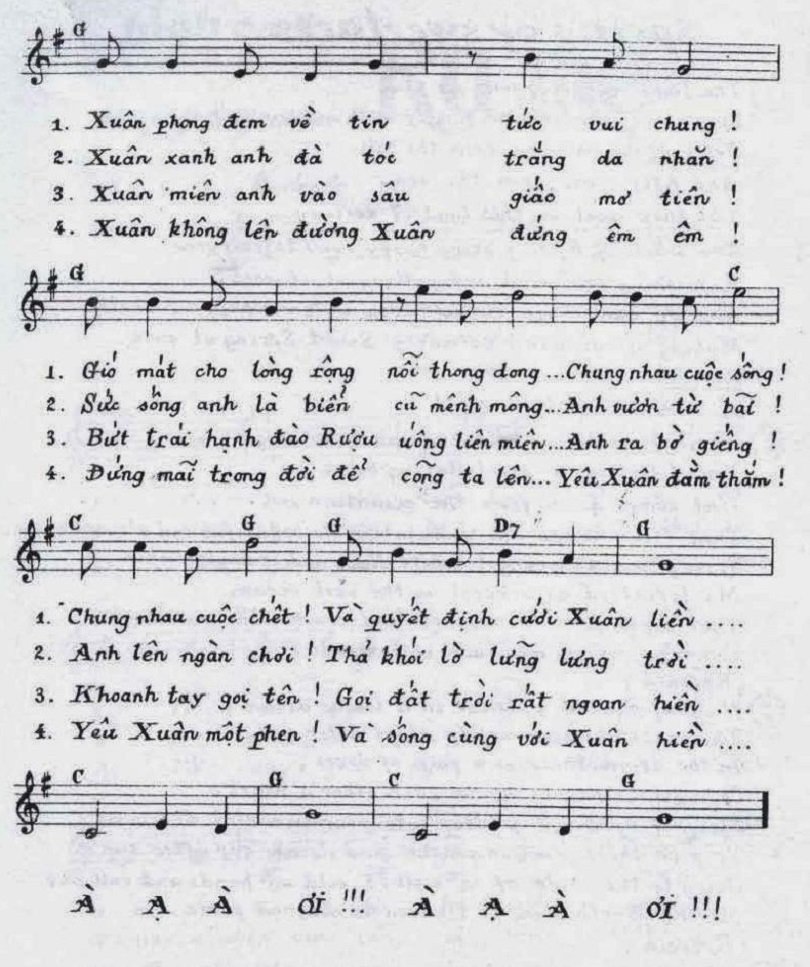 G
1. Xuân phong đem về tin tức vui chung !
2. Xuân xanh anh đà tóc trắng da nhăn !
3. Xuân miên anh vào sâu giấc mơ tiên !
4. Xuân không lên đường Xuân đứng êm êm !
G C
1. Gió mát cho lòng rộng nỗi thong dong ... Chung nhau cuộc sống !
2. Sức sống anh là biển cũ mênh mông ... Anh vươn từ bãi !
3. Bứt trái hạnh đào Rượu uống liên miên ... Anh ra bờ giếng !
4. Đứng mãi trong đời để cõng ta lên ... Yêu Xuân đằm thắm !
C G G D7 G
1. Chung nhau cuộc chết ! Và quyết định cưới Xuân liền ....
2. Anh lên ngàn chơi ! Thả khói lờ lững lưng trời ....
3. Khoanh tay gọi tên ! Gọi đất trời rất ngoan hiền ....
4. Yêu Xuân một phen ! Và sống cùng với Xuân hiền ....
C G C G
À Ạ À ƠI !!! À Ạ À ƠI !!!